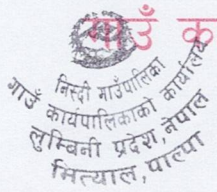 गाउँ क
निस्दी गाउँपालिका
गाउँ कार्यपालिकाको कार्यालय
लुम्बिनी प्रदेश, नेपाल
मित्याल, पाल्पा